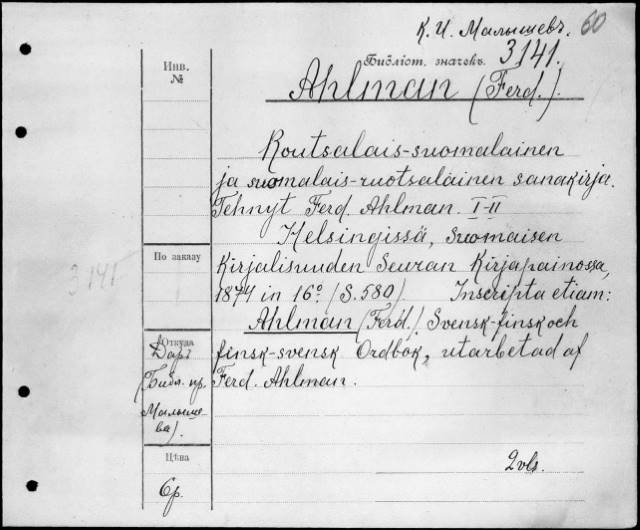 К. И. Малышевъ. 60
Библіот. значекъ. 3141.
Инв.
№
Ahlman (Ferd.).
Routsalais-suomalainen
ja suomalais-ruotsalainen sanakirja.
Tehnyt Ferd. Ahlman. I-II
Helsingissä, Suomaisen
По заказу
Kirjalisuuden Seuran Kirjapainossa,
3141
1874 in 16° (S. 580). Inscripta etiam:
Ahlman (Ferd.) Svensk-finsk och
Откуда
Даръ
finsk-svensk Ordbok, utarbetad af
(Библ. пр.
Ferd. Ahlman.
Малыше-
ва).
Цѣна
2 vls.
6 р.